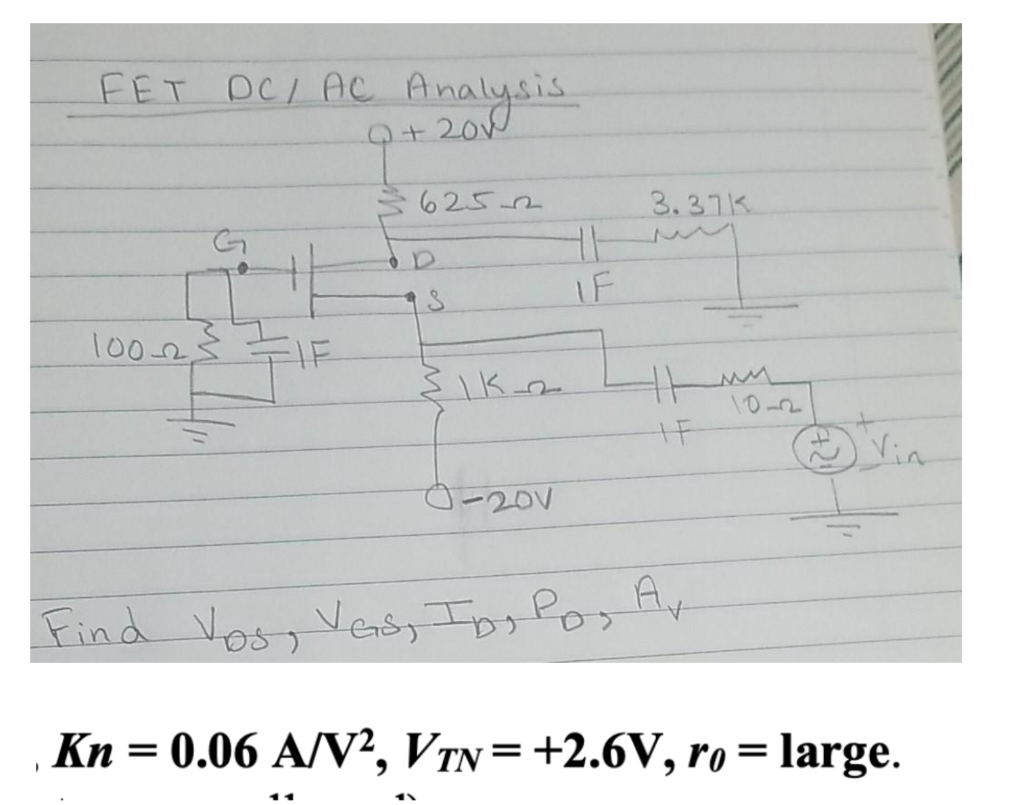 FET DC/AC Analysis
+20V
625Ω
3.37K
G
D
1F
S
100Ω
1F
1KΩ
10Ω
1F
+
+
Vin
-
-20V
Find VDS, VGS, ID, PD, Av
, Kn = 0.06 A/V², VTN = +2.6V, r0 = large.